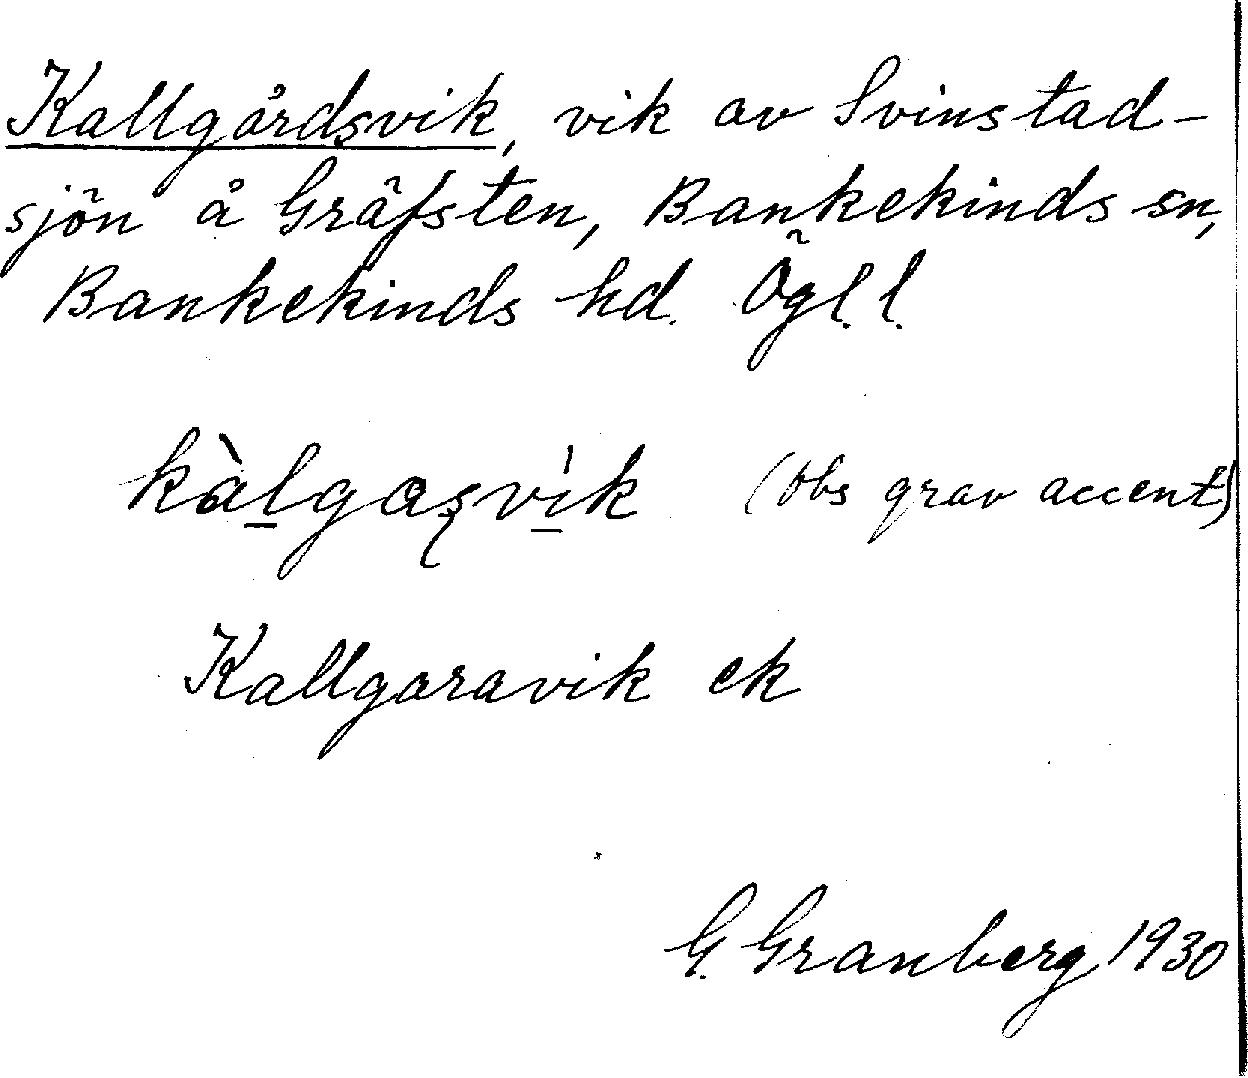 Kallgårdsvik, vik av Svinstad-
sjön å Gräfsten, Bankekinds sn,
Bankekinds hd. Ögl. l.
kàlgaşvík (obs grav accent)
Kallgaravik ek
G. Granberg 1930